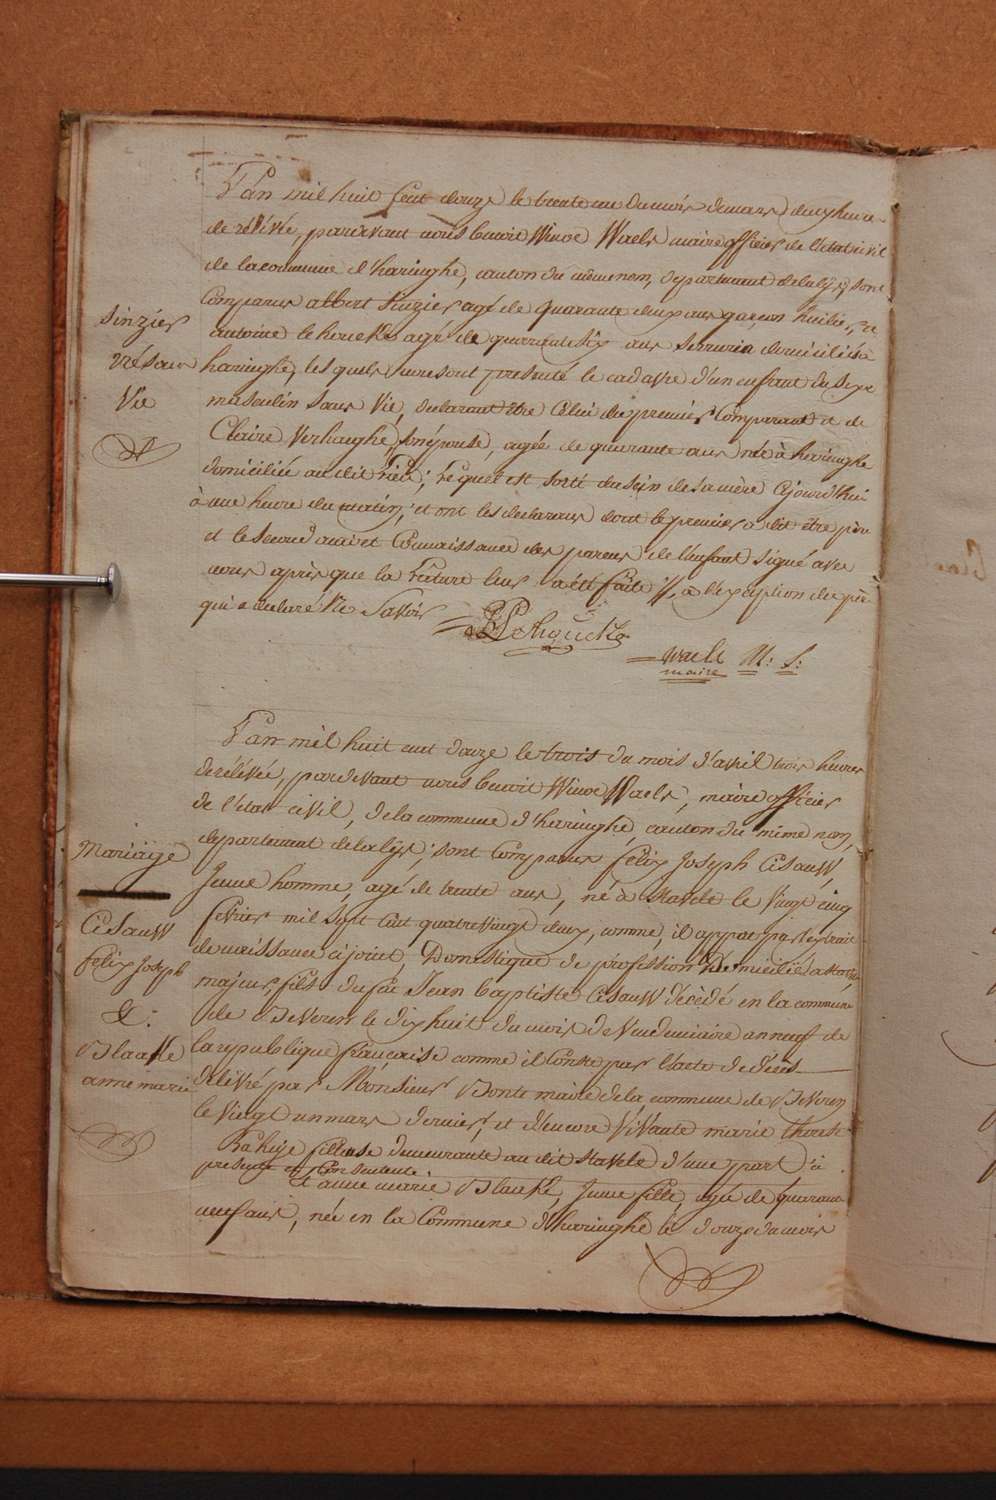 L'an mil huit cent douze le trente un du mois de mars deux heures
de rélévée, pardevant nous benoit Winoc Waels maire officier de l'état civil
de la commune d'haringhe, canton du même nom, departement de la lys, sont
Comparus albert Sinzier agé de quarante deux ans garçon huilier, et
antoine lehoucke agé de quarante six ans serrurier domiciliés à
haringhe, les quels nous ont presenté le cadavre d'un enfant du sexe
masculin sans vie, declarant être celui du premier Comparant et de
Claire Verhaeghe, son épouse, agée de quarante ans née à haringhe
domiciliée au dit lieu; lequel est sorti du sein de sa mère cejourd'hui
à une heure du matin; et ont les declarans dont le premier a dit être père
et le second avoir connaissance des parens de l'enfant signé avec
nous après que la lecture leur a été faite, à l'exception du père
qui a declaré ne savoir
Waels M: S:
maire
sinzier
né sans
Vie
L'an mil huit cent douze le trois du mois d'avril trois heures
de rélévée, pardevant nous benoit Winoc Waels, maire officier
de l'état civil, de la commune d'haringhe, canton du même nom,
departement de la lys; sont Comparus felix Joseph Cisauw,
Jeune homme, agé de trente ans, né à stavele le vingt cinq
fevrier mil sept cent quatrevingt deux, comme, il appert par l'extrait
de naissance ci joint, Domestique de profession domicilié à
majeur, fils du feu Jean baptiste Cisauw décédé en la commune
de Beveren le dix huit du mois de Vendemiaire an neuf de
la republique française comme il conste par l'acte de décès
délivré par Monsieur Bonte maire de la commune de Beveren
le vingt un mars dernier, et d'encore vivante marie therese
fileuse demeurante au dit stavele d'une part à
presente et consentente.
Et anne marie Blaake, Jeune fille, agée de quarante
neuf ans, née en la Commune d'haringhe le douze du mois
Mariage
Cisauw
felix Joseph
&:
Blaake
anne marie